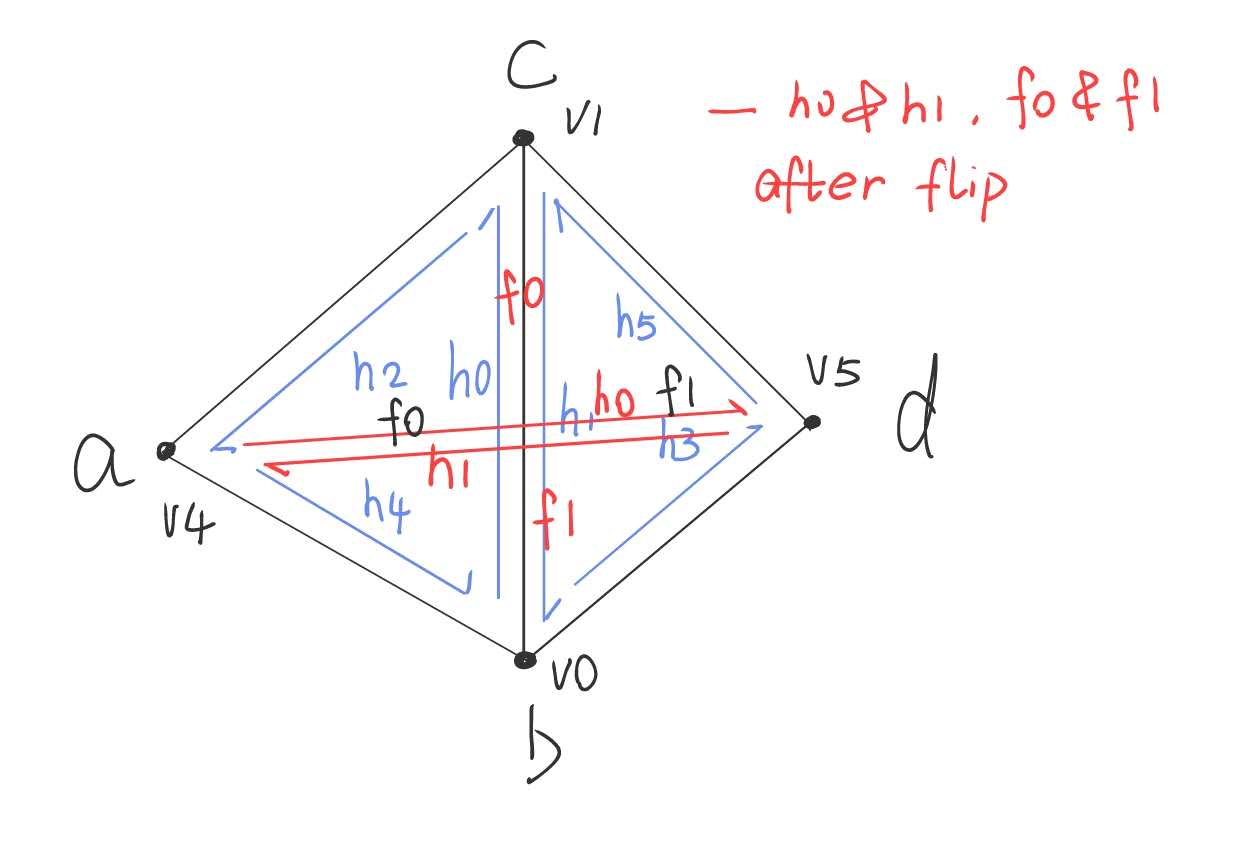 c
v1
— h0 & h1 . f0 & f1
after flip
f0
h5
h2
h0
f0
h1
h0
f1
v5
d
h3
a
v4
h1
h4
f1
v0
b